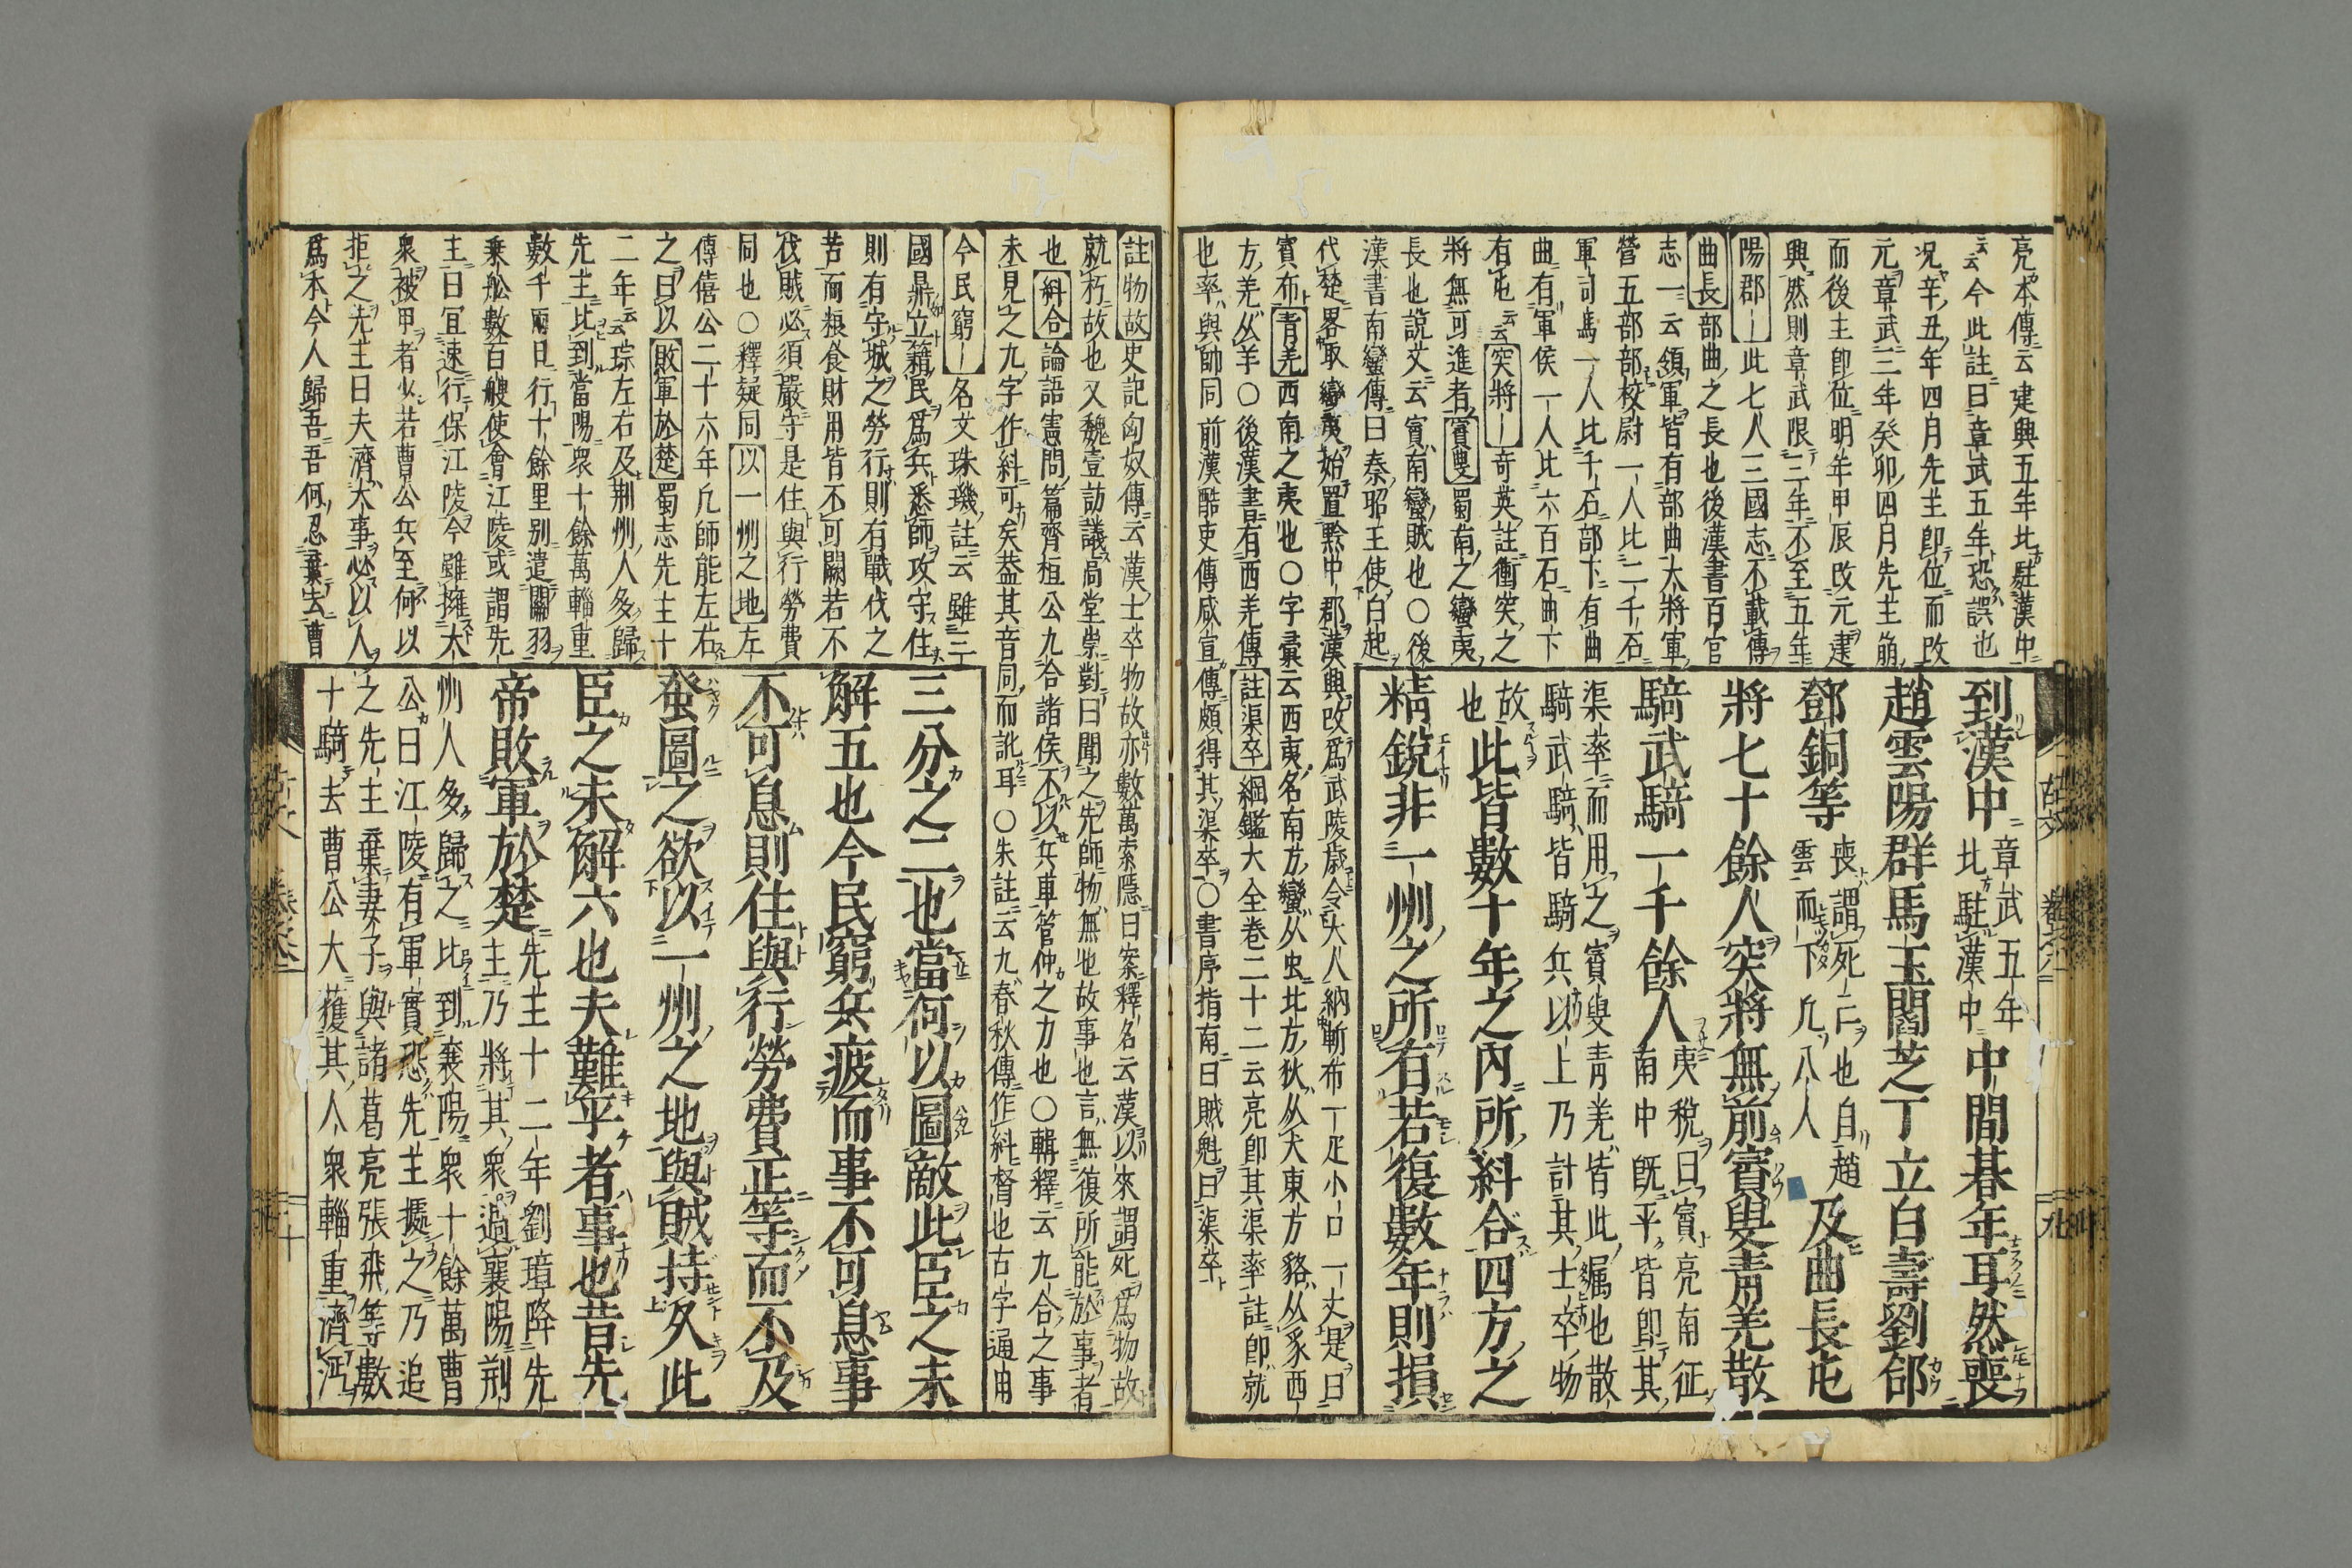 亮本傳云建興五年北駐漢中
云云今此註曰章武五年恐誤也
況辛丑年四月先主即位而改
元章武三年癸卯四月先主崩
而後主即位明年甲辰改元建
興然則章武限三年不至五年
陽郡｜此七人三國志不載傳
曲長部曲之長也後漢書百官
志一云領軍皆有部曲大將軍
營五部部校尉一人比二千石
軍司馬一人比千石部下有曲
曲有軍侯一人比六百石曲下
有屯云云突將｜奇英註衝突之
將無可進者賨叟蜀南之蠻夷
長也說文云賨南蠻賊也○後
漢書南蠻傳曰秦昭王使白起
代楚畧取蠻夷始置黔中郡漢興改爲武陵歲令大人納布一疋小口二丈是曰
賨布青羌西南之夷也○字彙云西夷名南方蠻从虫北方狄从犬東方貉从豸西
方羌从羊○後漢書有西羌傳註渠卒綱鑑大全卷二十二云亮即其渠率註即就
也率與帥同前漢酷吏傳咸宣傳頗得其渠卒○書序指南曰賊魁曰渠卒
到漢中章武五年北駐漢中中間朞年耳然喪
趙雲陽群馬玉閻芝丁立白壽劉郃
鄧銅等喪謂死亡也自趙雲而下凡八人及曲長屯
將七十餘人突將無前賨叟靑羌散
騎武騎一千餘人夷稅曰賨亮南征南中既平皆即其
渠率而用之賨叟青羌皆此屬也散騎武騎皆騎兵以上乃計其士卒物
故也此皆數十年之內所糾合四方之
精銳非一州之所有若復數年則損
註物故史記匈奴傳云漢士卒物故亦數萬索隱曰案釋名云漢以來謂死爲物故
就朽故也又魏壹訪議高堂崇對曰聞之先師物無也故事也言無復所能於事者
也糾合論語憲問篇齊桓公九合諸侯不以兵車管仲之力也○輯釋云九合之事
未見之九字作糾可矣蓋其音同而訛耳○朱註云九春秋傳作糾督也古字通用
今民窮｜名文珠璣註云雖三
國鼎立籍民爲兵悉師攻守住
則有守城之勞行則有戰伐之
苦而粮食財用皆不可闕若不
伐賊必須嚴守是住與行勞費
同也○釋疑同以一州之地左
傳僖公二十六年凡師能左右
之曰以敗軍於楚蜀志先主十
二年云云琮左右及荆州人多歸
先主比到當陽衆十餘萬輜重
數千兩日行十餘里別遣關羽
乗舩數百艘使會江陵或謂先
主曰宜速行保江陵今雖擁大
衆被甲者少若曹公兵至何以
拒之先主曰夫濟大事必以人
爲本今人歸吾吾何忍棄去曹
三分之二也當何以圖敵此臣之未
解五也今民窮兵疲而事不可息事
不可息則住與行勞費正等而不及
蚤圖之欲以一州之地與賊持久此
臣之未解六也夫難平者事也昔先
帝敗軍於楚先主十二年劉璋降先主乃將其衆過襄陽荆
州人多歸之比到襄陽衆十餘萬曹公曰江陵有軍實恐先主據之乃追
之先主棄妻子與諸葛亮張飛等數十騎去曹公大獲其人衆輜重濟沔